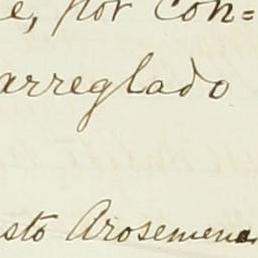 e, por con=
arreglado
sto Arosemena